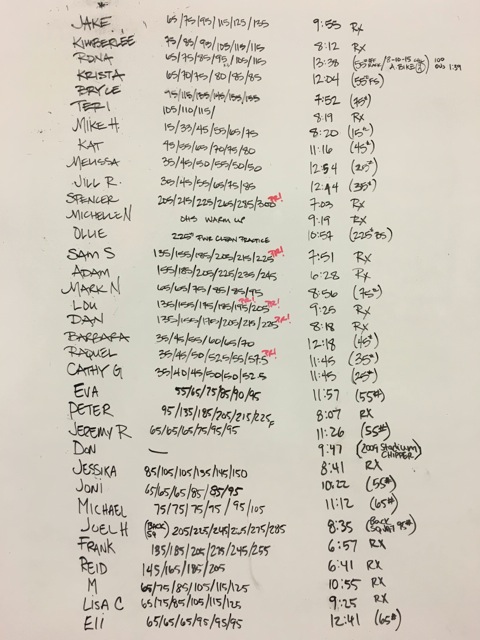 JAKE 65/75/95/115/125/135 9:55 RX
KIMBERLEE 75/85/95/105/115/115 8:12 RX
RONA 65/75/85/95/105/115 13:38
KRISTA 65/70/75/80/85/85 12:04 (55# FS)
BRYCE 95/115/135/145/155/155 7:52 (75#)
TERI 105/110/115/ 8:19 RX
MIKE H. 15/33/45/55/65/75 8:20 (15#)
KAT 45/55/65/70/75/80 11:16 (45#)
MELISSA 35/45/50/55/50/50 12:54 (25#)
JILL R. 35/45/55/65/75/85 12:44 (35#)
SPENCER 205/215/225/265/285/300 PR! 7:03 RX
MICHELLE N OHS WARM UP 9:19 RX
OLLIE 225# PWR CLEAN PRACTICE 10:54 (225# 85)
SAM S 135/155/185/205/215/225 PR! 7:51 RX
ADAM 155/185/205/225/235/245 6:28 RX
MARK N 65/65/75/85/85/95 8:56 (75#)
LOU 135/155/175/185/195/205 PR! PR! 9:25 RX
DAN 135/155/175/205/215/225 PR! 8:18 RX
BARBARA 35/45/55/60/65/70 12:18 (45#)
RAQUEL 35/45/50/52.5/55/57.5 PR! 11:45 (35#)
CATHY G 35/40/45/50/50/52.5 11:45 (25#)
EVA 55/65/75/85/90/95 11:57 (55#)
PETER 95/135/185/205/215/225F 8:07 RX
JEREMY R 65/65/65/75/95/95 11:26 (55#)
DON — 9:47 (2009 Stadium CHIPPER)
JESSIKA 85/105/105/135/145/150 8:41 RX
JONI 65/65/65/85/85/95 10:22 (55#)
MICHAEL 75/75/75/75/95/105 11:12 (65#)
JOEL H (BACK SQ) 205/225/245/255/275/285 8:35 (BACK SQUAT 95#)
FRANK 135/185/205/225/245/255 6:57 RX
REID 145/165/185/205 6:41 RX
M 65/75/85/105/115/125 10:55 RX
LISA C 65/75/85/105/115/125 9:25 RX
Eli 65/65/65/95/95/95 12:41 (65#)